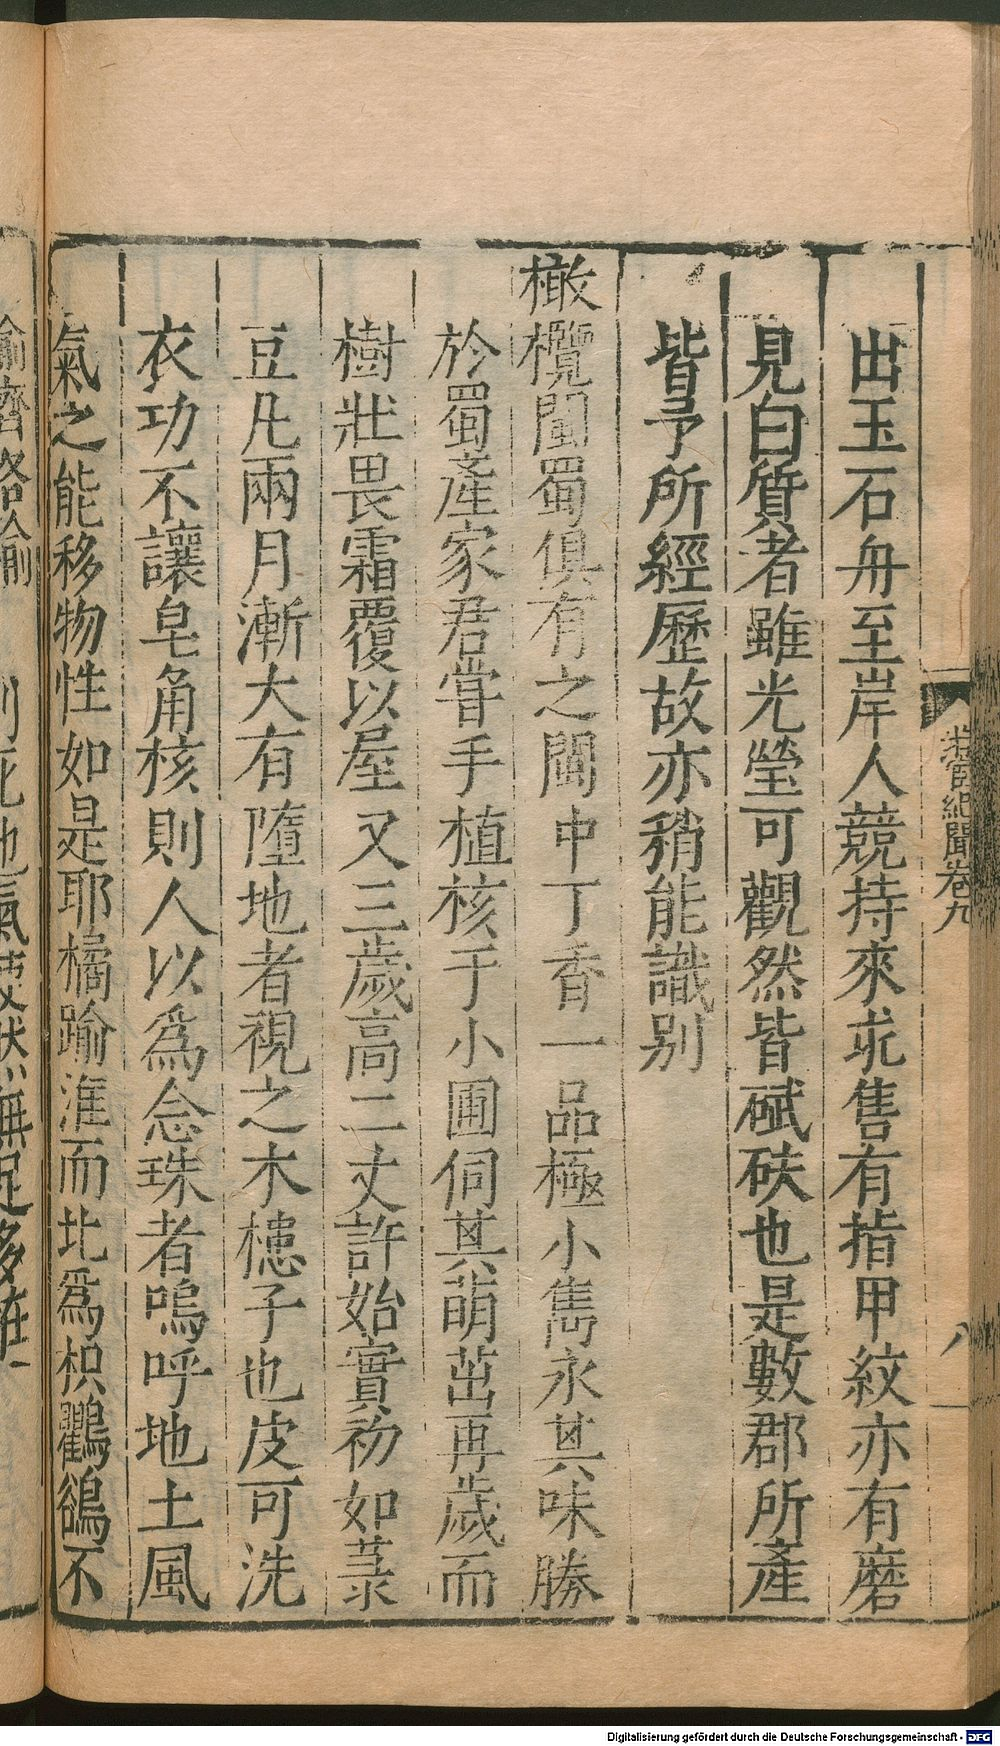 出玉石舟至岸人競持來求售有指甲紋亦有磨
見白質者雖光瑩可觀然皆碔砆也是數郡所產
皆予所經歷故亦稍能識別
橄欖閩蜀俱有之閩中丁香一品極小雋永其味勝
於蜀產家君嘗手植核于小圃伺其萌茁再歲而
樹壯畏霜覆以屋又三歲高二丈許始實初如菉
豆凡兩月漸大有墮地者視之木槵子也皮可洗
衣功不讓皂角核則人以為念珠者嗚呼地土風
氣之能移物性如是耶橘踰淮而北為枳鸜鵒不
踰濟貉踰
卷九
八
Digitalisierung gefördert durch die Deutsche Forschungsgemeinschaft - DFG